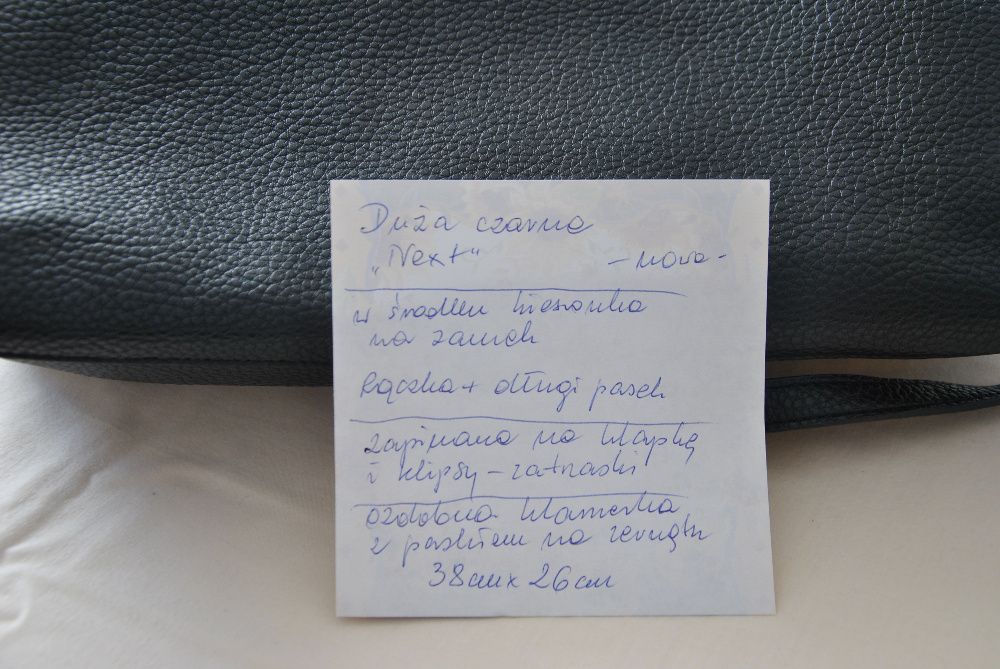 Duża czarna
„Next" - nowa -
w środku kieszonka
na zamek
Rączka + długi pasek
zapinana na klapkę
i klipsy - zatrzaski
ozdobna klamerka
z paskiem na zewnątrz
38cm x 26cm